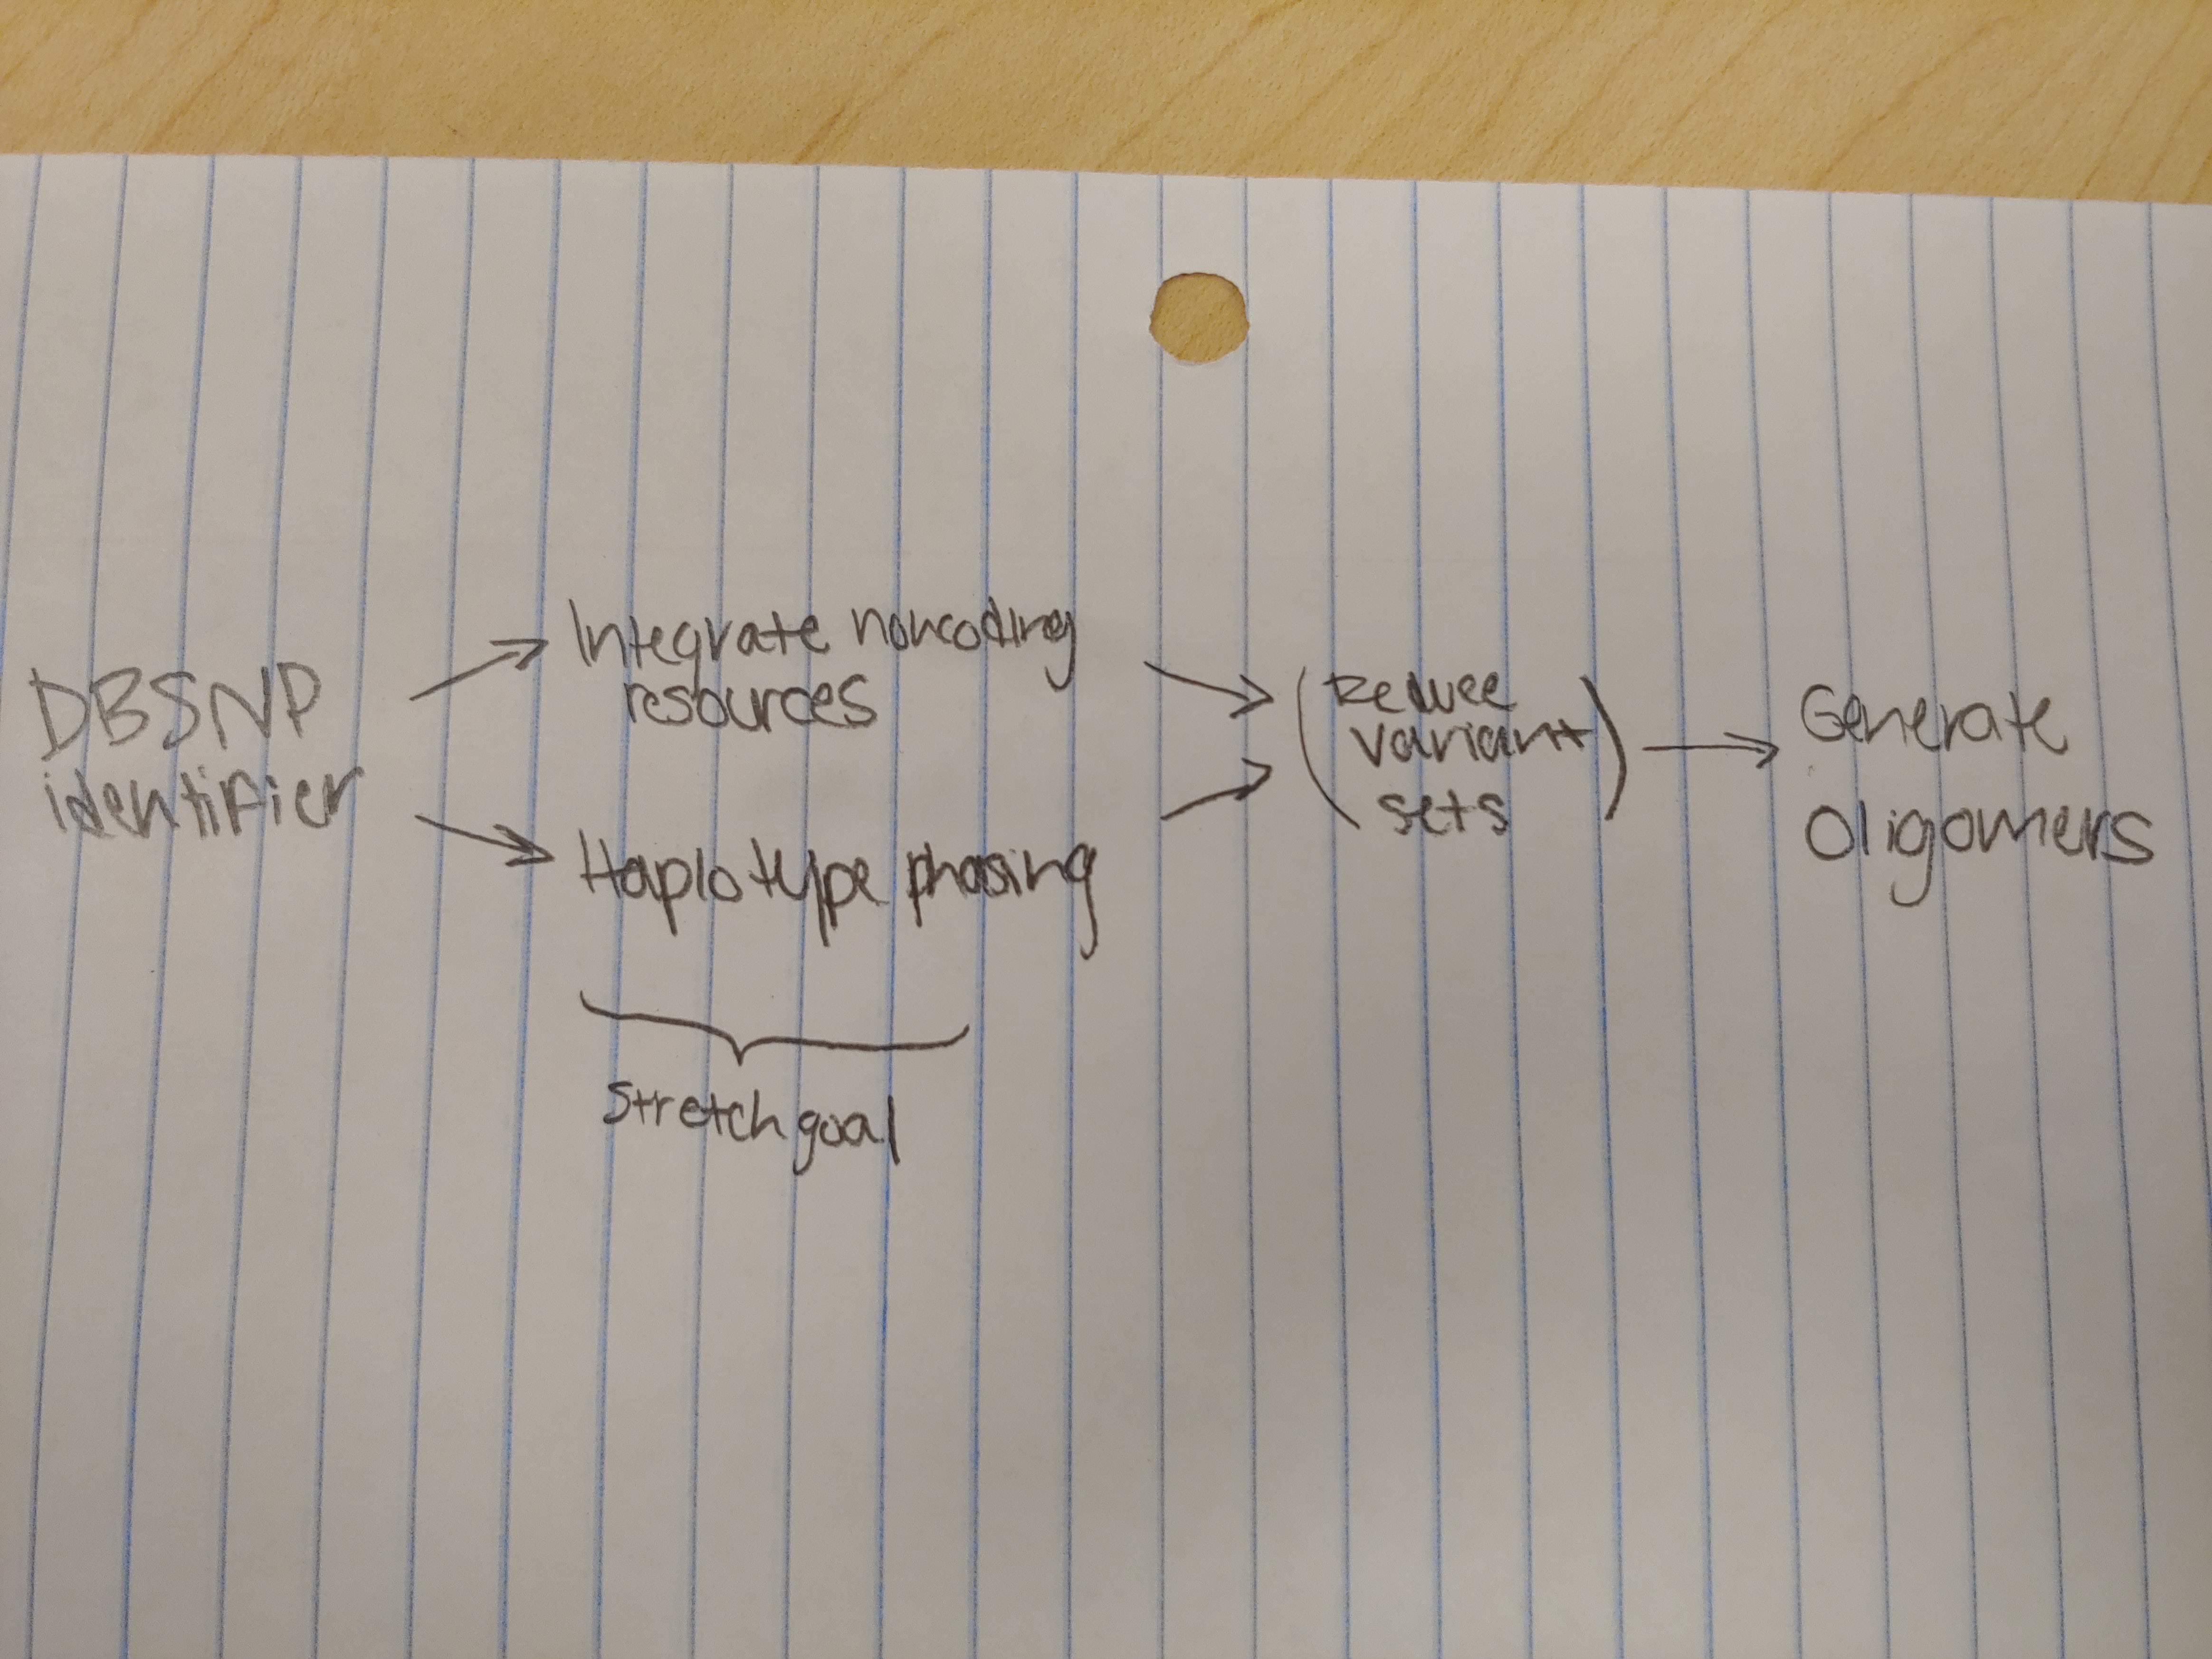 DBSNP
identifier
Integrate noncoding
resources
Haplotype phasing
Stretch goal
(Reduce
variant
sets)
Generate
Oligomers